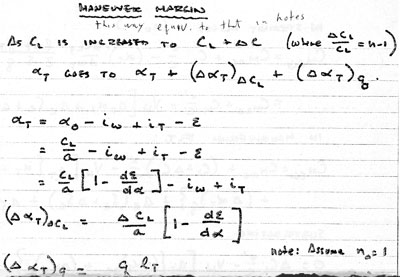 MANEUVER MARGIN
this way equiv. to that in notes
As C_L IS INCREASED TO C_L + ΔC (where ΔC_L/C_L = n-1)
α_T GOES TO α_T + (Δα_T)_ΔC_L + (Δα_T)_q.
α_T = α_0 - i_w + i_T - ε
= C_L/a - i_w + i_T - ε
= C_L/a [1 - dε/dα] - i_w + i_T
(Δα_T)_ΔC_L = ΔC_L/a [1 - dε/dα]
note: Assume n_0 = 1
(Δα_T)_q = q l_T